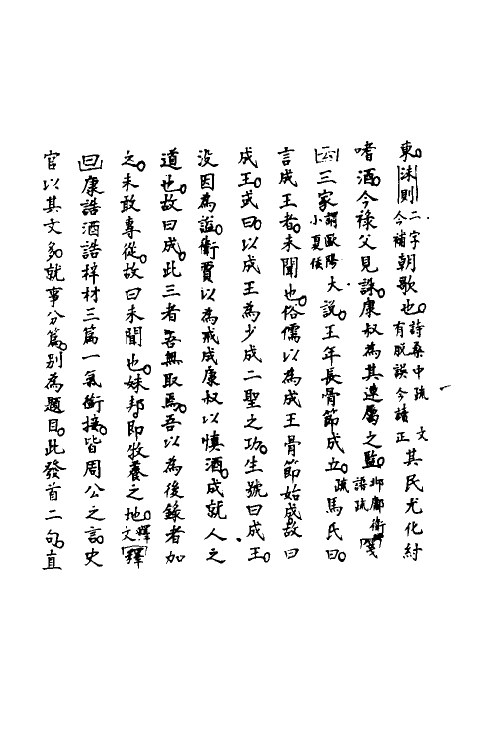 東沬則二字今補朝歌也詩桑中疏文有脫誤今諸正其民尤化紂
嗜酒今祿父見誅康叔為其連屬之監邶鄘衛譜疏箋
云三家謂歐陽大小夏侯說王年長骨節成立疏馬氏曰
言成王者未聞也俗儒以為成王骨節始成故曰
成王或曰以成王為少成二聖之功生號曰成王
沒因為謚衛賈以為戒成康叔以慎酒成就人之
道也故曰成此三者吾無取焉吾以為後錄者加
之未敢專從故曰未聞也妹邦即牧養之地釋文釋
曰康誥酒誥梓材三篇一氣銜接皆周公之言史
官以其文多就事分篇別為題目此發首二句直